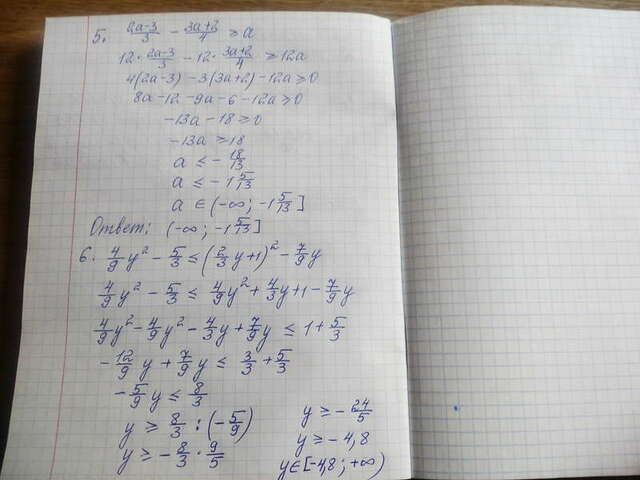 5. (2a-3)/3 - (3a+2)/4 ≥ a
12 · (2a-3)/3 - 12 · (3a+2)/4 ≥ 12a
4(2a-3) - 3(3a+2) - 12a ≥ 0
8a - 12 - 9a - 6 - 12a ≥ 0
-13a - 18 ≥ 0
-13a ≥ 18
a ≤ - 18/13
a ≤ - 1 5/13
a ∈ (-∞; -1 5/13]
Ответ: (-∞; -1 5/13]
6. 4/9 y² - 5/3 ≤ (2/3 y + 1)² - 7/9 y
4/9 y² - 5/3 ≤ 4/9 y² + 4/3 y + 1 - 7/9 y
4/9 y² - 4/9 y² - 4/3 y + 7/9 y ≤ 1 + 5/3
- 12/9 y + 7/9 y ≤ 3/3 + 5/3
- 5/9 y ≤ 8/3
y ≥ 8/3 : (- 5/9)
y ≥ - 8/3 · 9/5
y ≥ - 24/5
y ≥ - 4,8
y ∈ [-4,8; +∞)